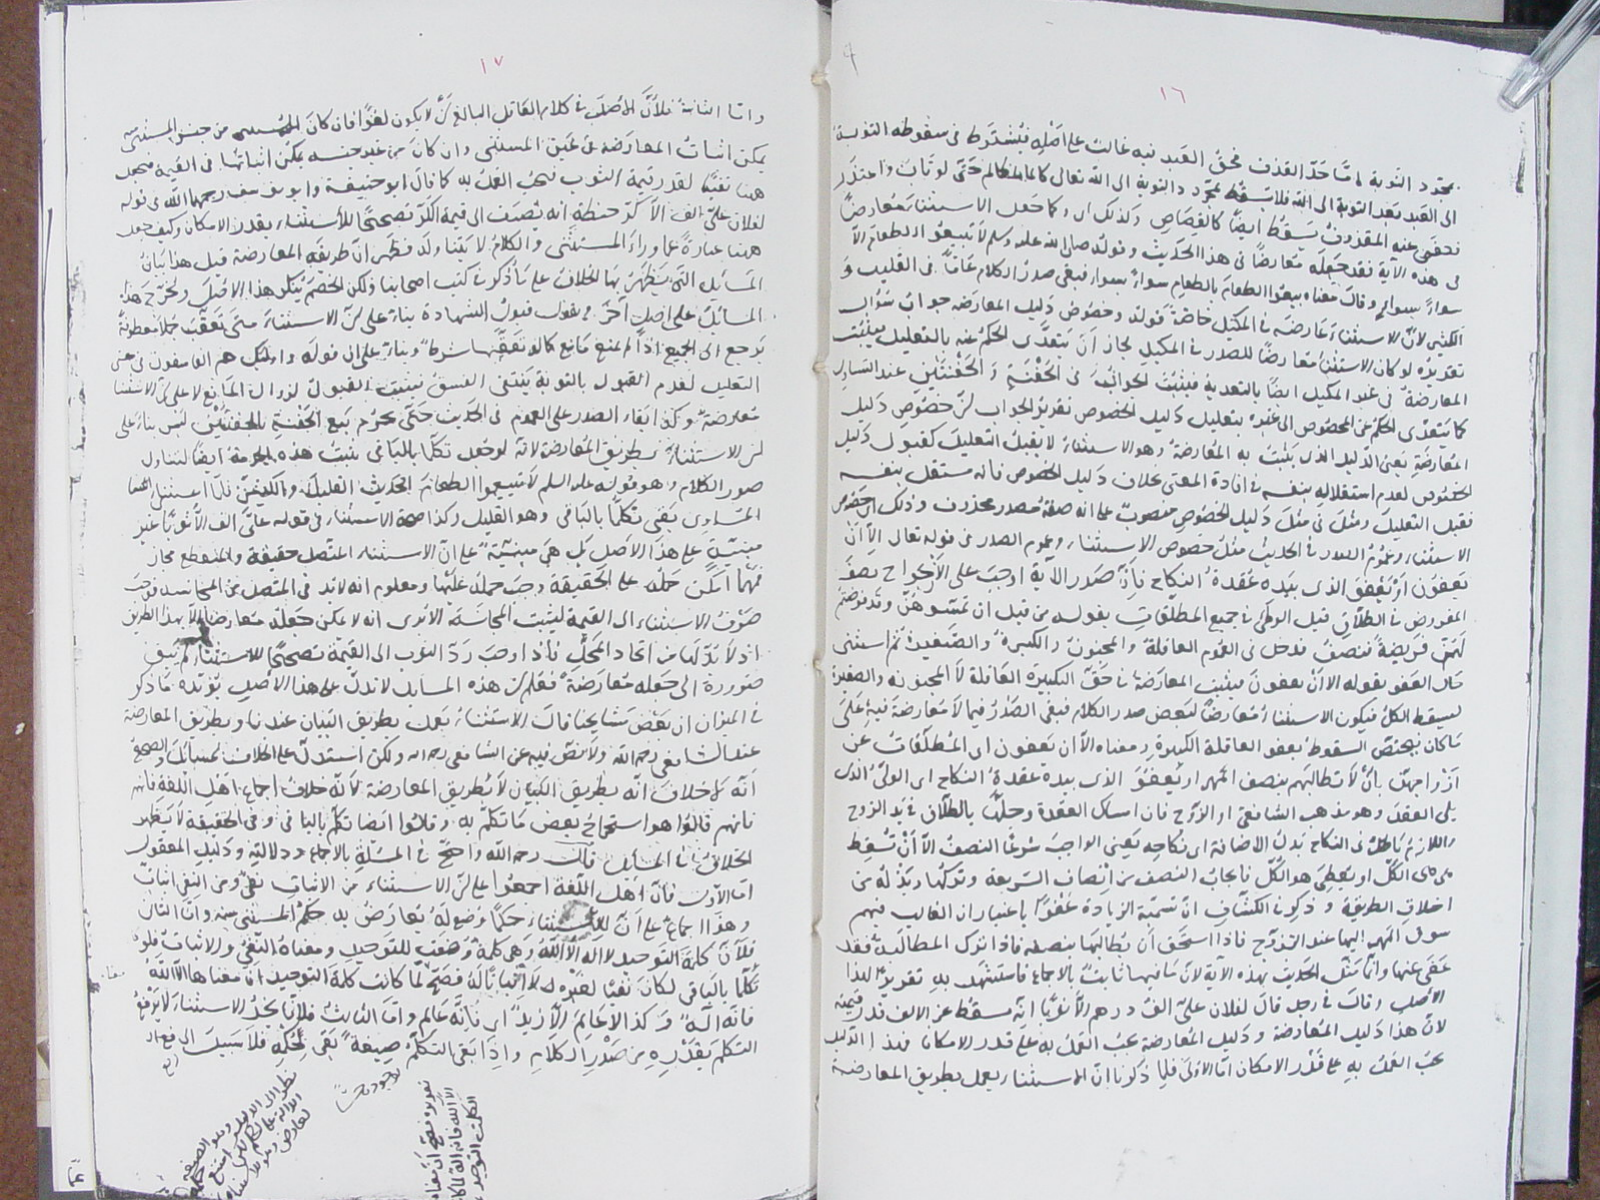 ١٦
بمجرد التوبة فاما حد القذف فحق العبد فيه غالب على اصله فيشترط في سقوطه التوبة
الى العبد بعد التوبة الى الله فلا يسقط بمجرد التوبة الى الله تعالى كالمظالم حتى لو تاب واعتذر
فعفى عنه المقذوف يسقط ايضا كالقصاص وكذلك اي وكما جعل الاستثناء معارضا
في هذه الآية فقد جعله معارضا في هذا الحديث وقوله صلى الله عليه وسلم لا تبيعوا الطعام الا
سواء بسواء وقال معناه بيعوا الطعام بالطعام سواء بسواء فبقى صدر الكلام عاما في القليل و
الكثير لان الاستثناء عارضه في المكيل خاصة قوله وخصوص دليل المعارضة جواب سؤال
تقديره لو كان الاستثناء معارضا للصدر في المكيل لجاز ان يتعدى الحكم عنه بالتعليل فيثبت
المعارضة في غير المكيل ايضا بالتعدية فيثبت الجواز في الحفنة والحفنتين عند التساوي
كما يتعدى الحكم عن المخصوص الى غيره بتعليل دليل الخصوص تقرير الجواب ان خصوص دليل
المعارضة يعني الدليل الذي يثبت به المعارضة وهو الاستثناء لا يقبل التعليل كقبول دليل
الخصوص لعدم استقلاله بنفسه في افادة المعنى بخلاف دليل الخصوص فانه مستقل بنفسه
فقبل التعليل ومثل في مثل دليل الخصوص منصوب على انه صفة مصدر محذوف وذلك اي خصوص
الاستثناء وعموم الصدر في الحديث مثل خصوص الاستثناء وعموم الصدر في قوله تعالى الا ان
يعفون او يعفو الذي بيده عقدة النكاح فان صدر الآية اوجب على الازواج نصف
المفروض في الطلاق قبل الوطئ في جميع المطلقات بقوله من قبل ان تمسوهن وقد فرضتم
لهن فريضة فنصف فدخل في العموم العاقلة والمجنونة والكبيرة والصغيرة ثم استثنى
حال العفو بقوله الا ان يعفون فيثبت المعارضة في حق الكبيرة العاقلة لا المجنونة والصغيرة
ليسقط الكل فيكون الاستثناء معارضا لبعض صدر الكلام فبقى الصدر فيما لا معارضة فيه على
ما كان فيختص السقوط بعفو العاقلة الكبيرة ومعناه الا ان يعفون اي المطلقات عن
ازواجهن بان لا تطالبهم بنصف المهر او يعفو الذي بيده عقدة النكاح اي الولي الذي
يلي العقد وهو مذهب الشافعي او الزوج فان امساك العقدة وحلها بالطلاق في يد الزوج
واللازم في النكاح بدل الاضافة اي نكاحه يعني الواجب شرعا النصف الا ان تسقط
هي الكل او يعطي هو الكل فايجاب النصف من انصاف الشريعة وتركها وبذله من
اخلاق الطريقة وذكر في الكشاف ان تسمية الزيادة عفوا باعتبار ان الغالب فيهم
سوق المهر اليها عند التزوج فاذا استحق ان يطالبها بنصفه فاذا ترك المطالبة فقد
عفى عنها وانما مثل الحديث بهذه الآية لان ما فيها ثابت بالاجماع فاستشهد به تقريرا لهذا
الاصل وقال في رجل قال لفلان علي الف درهم الا ثوبا انه يسقط عن الالف قدر قيمته
لان هذا دليل المعارضة ودليل المعارضة يجب العمل به على قدر الامكان فهذا الدليل
يجب العمل به على قدر الامكان اما الاولى فلما ذكرنا ان الاستثناء يعمل بطريق المعارضة
١٧
واما الثانية فلان الاصل في كلام العاقل البالغ ان لا يكون لغوا فان كان المستثنى من جنس المستثنى
يمكن اثبات المعارضة في عين المستثنى وان كان من غير جنسه يمكن اثباتها في القيمة فيجعل
هنا نفيا لقدر قيمة الثوب فيجب العمل به كما قال ابو حنيفة وابو يوسف رحمهما الله في قوله
لفلان علي الف الا كر حنطة انه يصرف الى قيمة الكر تصحيحا للاستثناء بقدر الامكان وكيف يجعل
ههنا عبارة عما وراء المستثنى والكلام لا يتناوله فظهر ان طريقه المعارضة قيل هذا بيان
المسائل التي يظهر بها الخلاف على ما ذكر في كتب اصحابنا ولكن الخصم ينكر هذا الاصل ويخرج هذه
المسائل على اصل آخر فيقول قبول الشهادة بناء على ان الاستثناء متى تعقب جملا معطوفة
يرجع الى الجميع اذا لم يمنع مانع كما لو تعقبها شرط وبناء على ان قوله واولئك هم الفاسقون في معنى
التعليل لعدم القبول بالتوبة ينتفي الفسق فيثبت القبول لزوال المانع لا على ان الاستثناء
معارضة وكذا ابقاء الصدر على العموم في الحديث حتى يحرم بيع الحفنة بالحفنتين ليس بناء على
ان الاستثناء بطريق المعارضة لانه لو جعل تكلما بالباقي يثبت هذه الحرمة ايضا لتناول
صدر الكلام وهو قوله عليه السلام لا تبيعوا الطعام الحديث القليل والكثير لما استثنى
المتساوي بقى تكلما بالباقي وهو القليل وكذا صحة الاستثناء في قوله علي الف الا ثوبا غير
مبنية على هذا الاصل بل هي مبنية على ان الاستثناء المتصل حقيقة والمنقطع مجاز
فمهما امكن حمله على الحقيقة وجب حمله عليها ومعلوم انه لا بد في المتصل من المجانسة فوجب
صرف الاستثناء الى القيمة ليثبت المجانسة الا يرى انه لا يمكن جعله معارضا الا بهذا الطريق
اذ لا بد لها من اتحاد المحل فاذا وجب رد الثوب الى القيمة تصحيحا للاستثناء لم يبق
ضرورة الى جعله معارضة فعلم ان هذه المسايل لا تدل على هذا الاصل يؤيده ما ذكر
في الميزان ان بعض مشايخنا قال الاستثناء يعمل بطريق البيان عندنا وبطريق المعارضة
عند الشافعي رحمه الله ولا نص فيه عن الشافعي رحمه الله ولكن استدل على الخلاف بمسائل والصحيح
انه لا خلاف انه بطريق البيان لا بطريق المعارضة لانه خلاف اجماع اهل اللغة فانهم
فانهم قالوا هو استخراج بعض ما تكلم به وقالوا ايضا تكلم بالباقي وفي الحقيقة لا يظهر
الخلاف في المسائل قال رحمه الله واحتج في المسئلة بالاجماع ودلالته ودليل المعقول
اما الاول فان اهل اللغة اجمعوا على ان الاستثناء من الاثبات نفي ومن النفي اثبات
وهذا اجماع على ان للاستثناء حكما وضع له يعارض به حكم المستثنى منه واما الثاني
فلان كلمة التوحيد لا اله الا الله وهي كلمة وضعت للتوحيد ومعناه النفي والاثبات فلو
تكلما بالباقي لكان نفيا لغيره لا اثباتا له فصح لما كانت كلمة التوحيد ان معناها الا الله
فانه اله وكذا لا عالم الا زيد اي فانه عالم واما الثالث فلانا نجد الاستثناء لا يرفع
التكلم بقدره من صدر الكلام واذا بقى التكلم صيغة بقى بحكمه فلا سبيل الى رفع